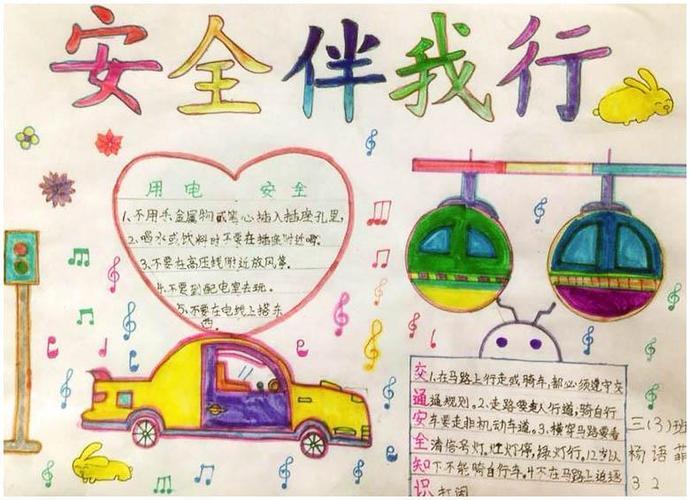 安全伴我行
用电 安全
1、不用手、金属物或笔心插入插座孔里,
2、喝水或饮料时不要在插座附近喝。
3、不要在高压线附近放风筝。
4、不要到配电室去玩。
5、不要在电线上搭东
西。
交通安全知识
1.在马路上行走或骑车,都必须遵守交
通规则。2.走路要走人行道,骑自行
车要走非机动车道。3.横穿马路要看
清信号灯。红灯停,绿灯行。12岁以
下不能骑自行车。4不在马路上追逐
打闹
三(3)班
杨语菲
32